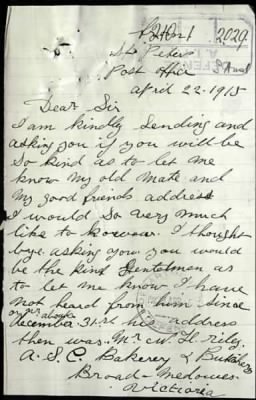 2029
St Peters
Post Office
April 22-1915
Dear Sir
I am kindly Sending and
asking you if you will be
So kind as to let me
know my old mate and
My good friends address
I would So very much
like to
I thought
bye asking you you would
be the kind Gentelman as
to let me know I have
not heard from him since
or above
december 31st his address
then was Mr C W H riley
A.S.C. Bakerey &
Broad-Medowes
Victioria